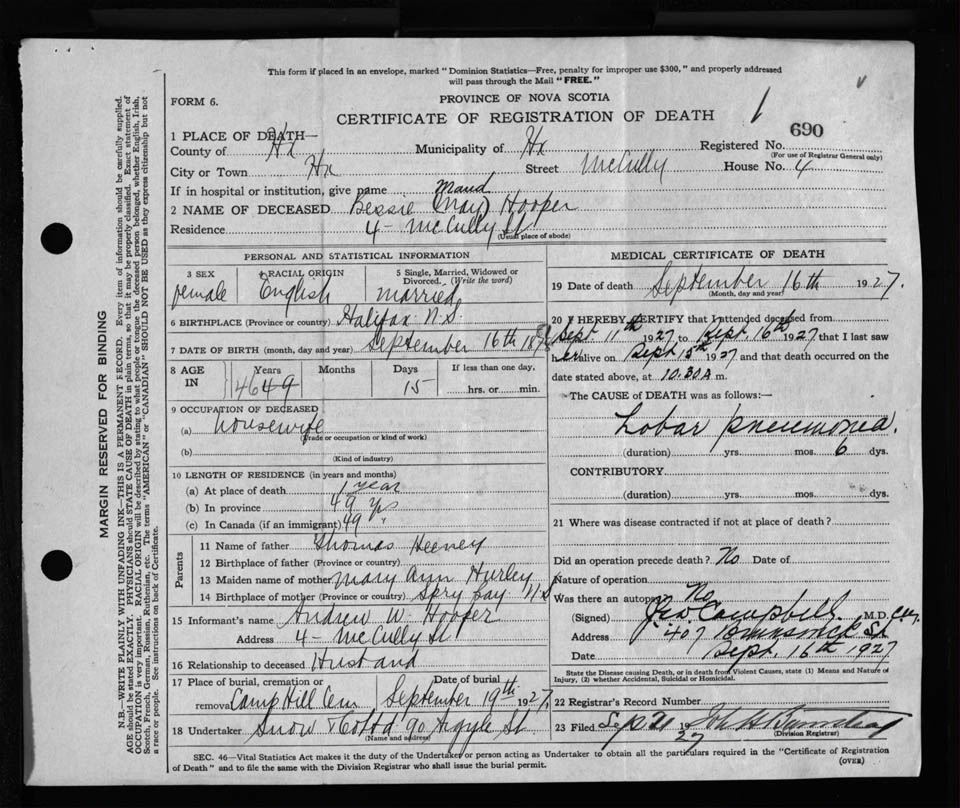 This form if placed in an envelope, marked "Dominion Statistics—Free, penalty for improper use $300," and properly addressed
will pass through the Mail "FREE."
FORM 6.
PROVINCE OF NOVA SCOTIA
CERTIFICATE OF REGISTRATION OF DEATH
690
1 PLACE OF DEATH—
County of Hx Municipality of Hx Registered No.
(For use of Registrar General only)
City or Town Hx Street McCully House No. 4
If in hospital or institution, give name
Maud
2 NAME OF DECEASED Bessie (May) Hooper
Residence 4 - McCully St
(Usual place of abode)
PERSONAL AND STATISTICAL INFORMATION
3 SEX 4 RACIAL ORIGIN 5 Single, Married, Widowed or Divorced. (Write the word)
female English married
6 BIRTHPLACE (Province or country) Halifax N.S.
7 DATE OF BIRTH (month, day and year) September 16th
8 AGE IN Years Months Days If less than one day,
46 49 15 hrs. or min.
9 OCCUPATION OF DECEASED
(a) housewife
(Trade or occupation or kind of work)
(b)
(Kind of industry)
10 LENGTH OF RESIDENCE (in years and months)
(a) At place of death 1 year
(b) In province 49 yrs
(c) In Canada (if an immigrant) 49
Parents
11 Name of father Thomas Heeney
12 Birthplace of father (Province or country)
13 Maiden name of mother Mary Ann Hurley
14 Birthplace of mother (Province or country) Spry Bay N.S.
15 Informant's name Andrew W. Hooper
Address 4 - McCully St
16 Relationship to deceased Husband
17 Place of burial, cremation or removal Camp Hill Cem Date of burial September 19th 1927
18 Undertaker Snow & Co Ltd 90 Argyle St
(Name and address)
MEDICAL CERTIFICATE OF DEATH
19 Date of death September 16th 1927.
(Month, day and year)
20 I HEREBY CERTIFY that I attended deceased from
Sept. 11th 1927 to Sept. 16th 1927 that I last saw
her alive on Sept 15th 1927 and that death occurred on the
date stated above, at 10.30 A m.
The CAUSE of DEATH was as follows:—
Lobar pneumonia.
(duration) yrs. mos. 6 dys.
CONTRIBUTORY
(duration) yrs. mos. dys.
21 Where was disease contracted if not at place of death?
Did an operation precede death? No Date of
Nature of operation
Was there an autopsy? No
(Signed) Geo. Campbell M.D.
Address 407 Brunswick St
Date Sept. 16th 1927
State the Disease causing Death, or in death from Violent Causes, state (1) Means and Nature of
Injury, (2) whether Accidental, Suicidal or Homicidal.
22 Registrar's Record Number
23 Filed Sep 21 1927
(Division Registrar)
SEC. 46—Vital Statistics Act makes it the duty of the Undertaker or person acting as Undertaker to obtain all the particulars required in the "Certificate of Registration
of Death" and to file the same with the Division Registrar who shall issue the burial permit.
(OVER)
MARGIN RESERVED FOR BINDING
N.B.—WRITE PLAINLY WITH UNFADING INK—THIS IS A PERMANENT RECORD. Every item of information should be carefully supplied.
AGE should be stated EXACTLY. PHYSICIANS should STATE CAUSE OF DEATH in plain terms, so that it may be properly classified. Exact statement of
OCCUPATION is very important. RACIAL ORIGIN will be described by stating to what people or tongue the deceased person belonged, whether English, Irish,
Scotch, French, German, Russian, Ruthenian, etc. The terms "AMERICAN" or "CANADIAN" SHOULD NOT BE USED as they express citizenship but not
a race or people. See instructions on back of Certificate.